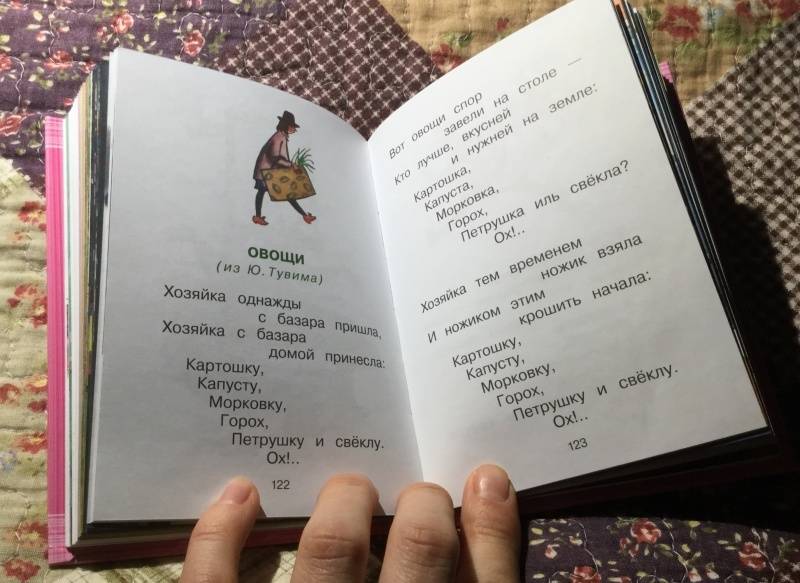 ОВОЩИ
(из Ю. Тувима)
Хозяйка однажды
с базара пришла,
Хозяйка с базара
домой принесла:
Картошку,
Капусту,
Морковку,
Горох,
Петрушку и свёклу.
Ох!..
122
Вот овощи спор
завели на столе —
Кто лучше, вкусней
и нужней на земле:
Картошка,
Капуста,
Морковка,
Горох,
Петрушка иль свёкла?
Ох!..
Хозяйка тем временем
ножик взяла
И ножиком этим
крошить начала:
Картошку,
Капусту,
Морковку,
Горох,
Петрушку и свёклу.
Ох!..
123